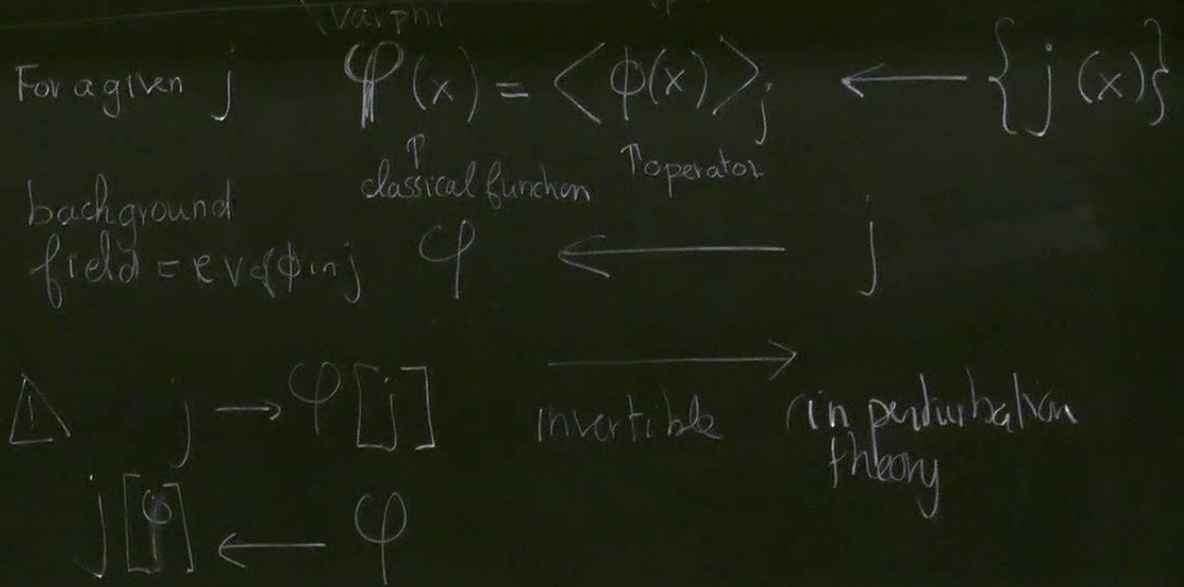 \varphi
For a given j φ(x) = <ϕ(x)>_j ← {j(x)}
↑ classical function ↑ operator
background
field = ev of ϕ in j φ ← j
→
⚠ j → φ[j] invertible (in perturbation
theory
j[φ] ← φ